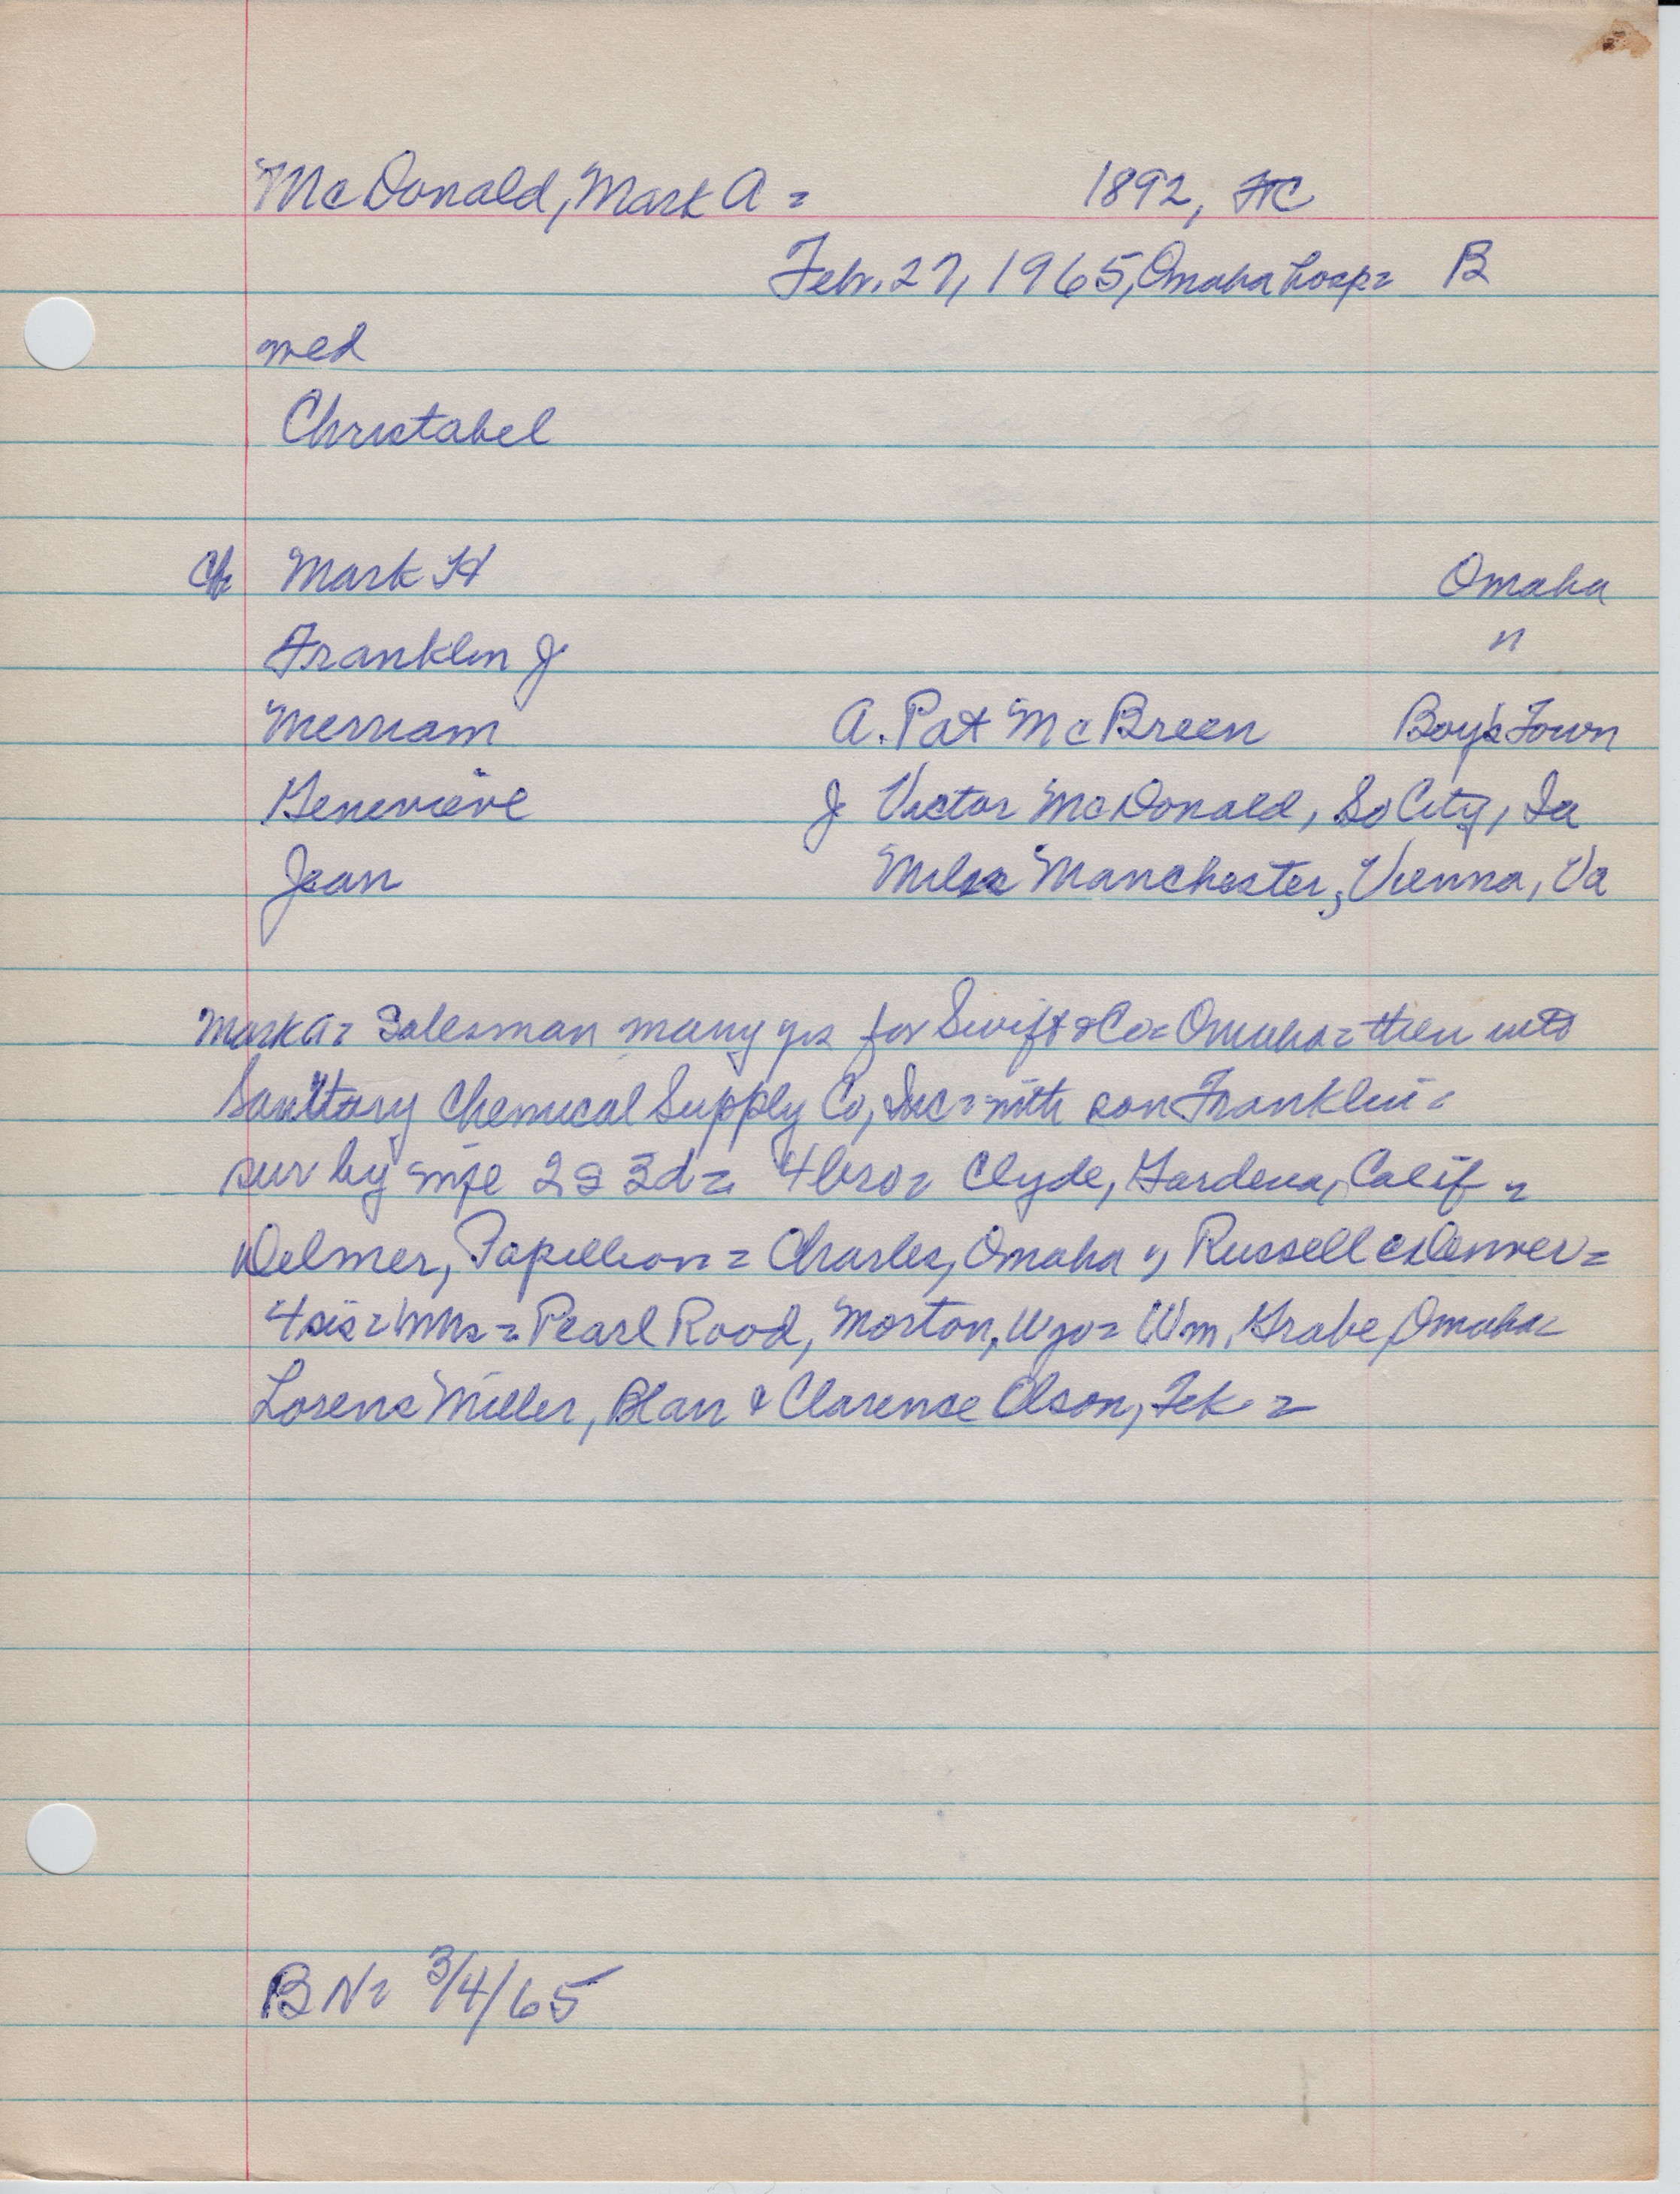 McDonald, Mark A = 1892, HC
Feb. 27, 1965, Omaha hosp = B
med
Christabel
Ch Mark H Omaha
Franklin J "
Merriam A. Pat McBreen Boy's Town
Genevieve J Victor McDonald, So City, Ia
Jean Miles Manchester, Vienna, Va
Mark A = Salesman many yrs for Swift & Co = Omaha = then into
Sanitary Chemical Supply Co, Inc = with son Franklin =
sur by wife 2s 3d = 4 bro = Clyde, Gardena, Calif =
Delmer, Papillion = Charles, Omaha = Russell Denver =
4 sis = Mms = Pearl Rood, Morton, Wyo = Wm. Grabe, Omaha =
Lorens Miller, Blair & Clarence Olson, Tek =
BN = 3/4/65